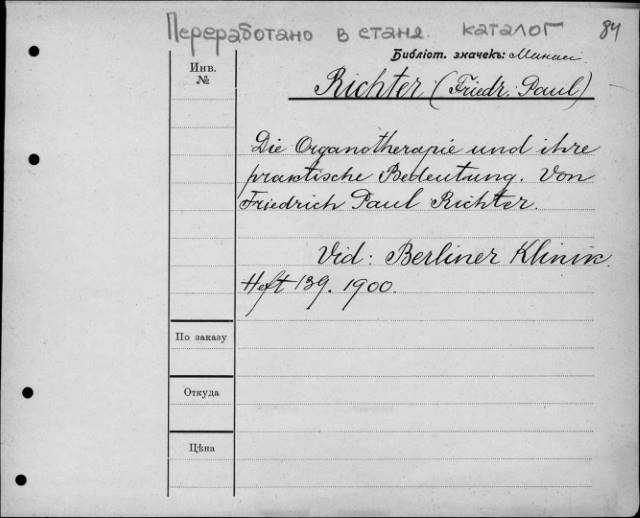 Переработано в станд. каталог 84
Библіот. значекъ:
Инв.
№
Richter (Friedr. Paul)
Die Organotherapie und ihre
praktische Bedeutung. Von
Friedrich Paul Richter.
Vid: Berliner Klinik.
Heft 139. 1900.
По заказу
Откуда
Цѣна